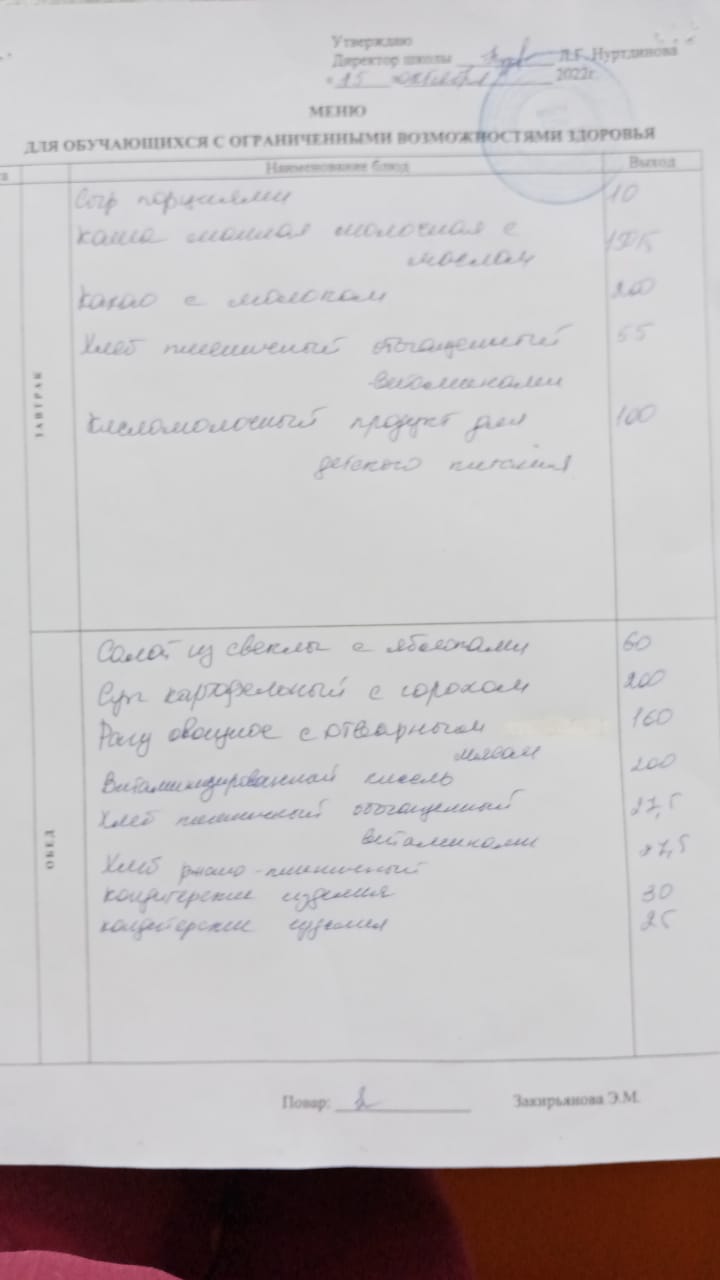 Утверждаю
Директор школы Л.Г. Нуртдинова
" 15 " октября 2022г.
МЕНЮ
ДЛЯ ОБУЧАЮЩИХСЯ С ОГРАНИЧЕННЫМИ ВОЗМОЖНОСТЯМИ ЗДОРОВЬЯ
Наименование блюд Выход
ЗАВТРАК
Сыр порциями 10
Каша манная молочная с
маслом
Какао с молоком 200
Хлеб пшеничный обогащенный 55
витаминами
Кисломолочный продукт для 100
детского питания
ОБЕД
Салат из свеклы с яблоками 60
Суп картофельный с горохом 200
Рагу овощное с отварным 160
мясом
Витаминизированный кисель 200
Хлеб пшеничный обогащенный 27,5
витаминами
Хлеб ржано-пшеничный 27,5
кондитерские изделия 30
кондитерские изделия 25
Повар: Закирьянова Э.М.